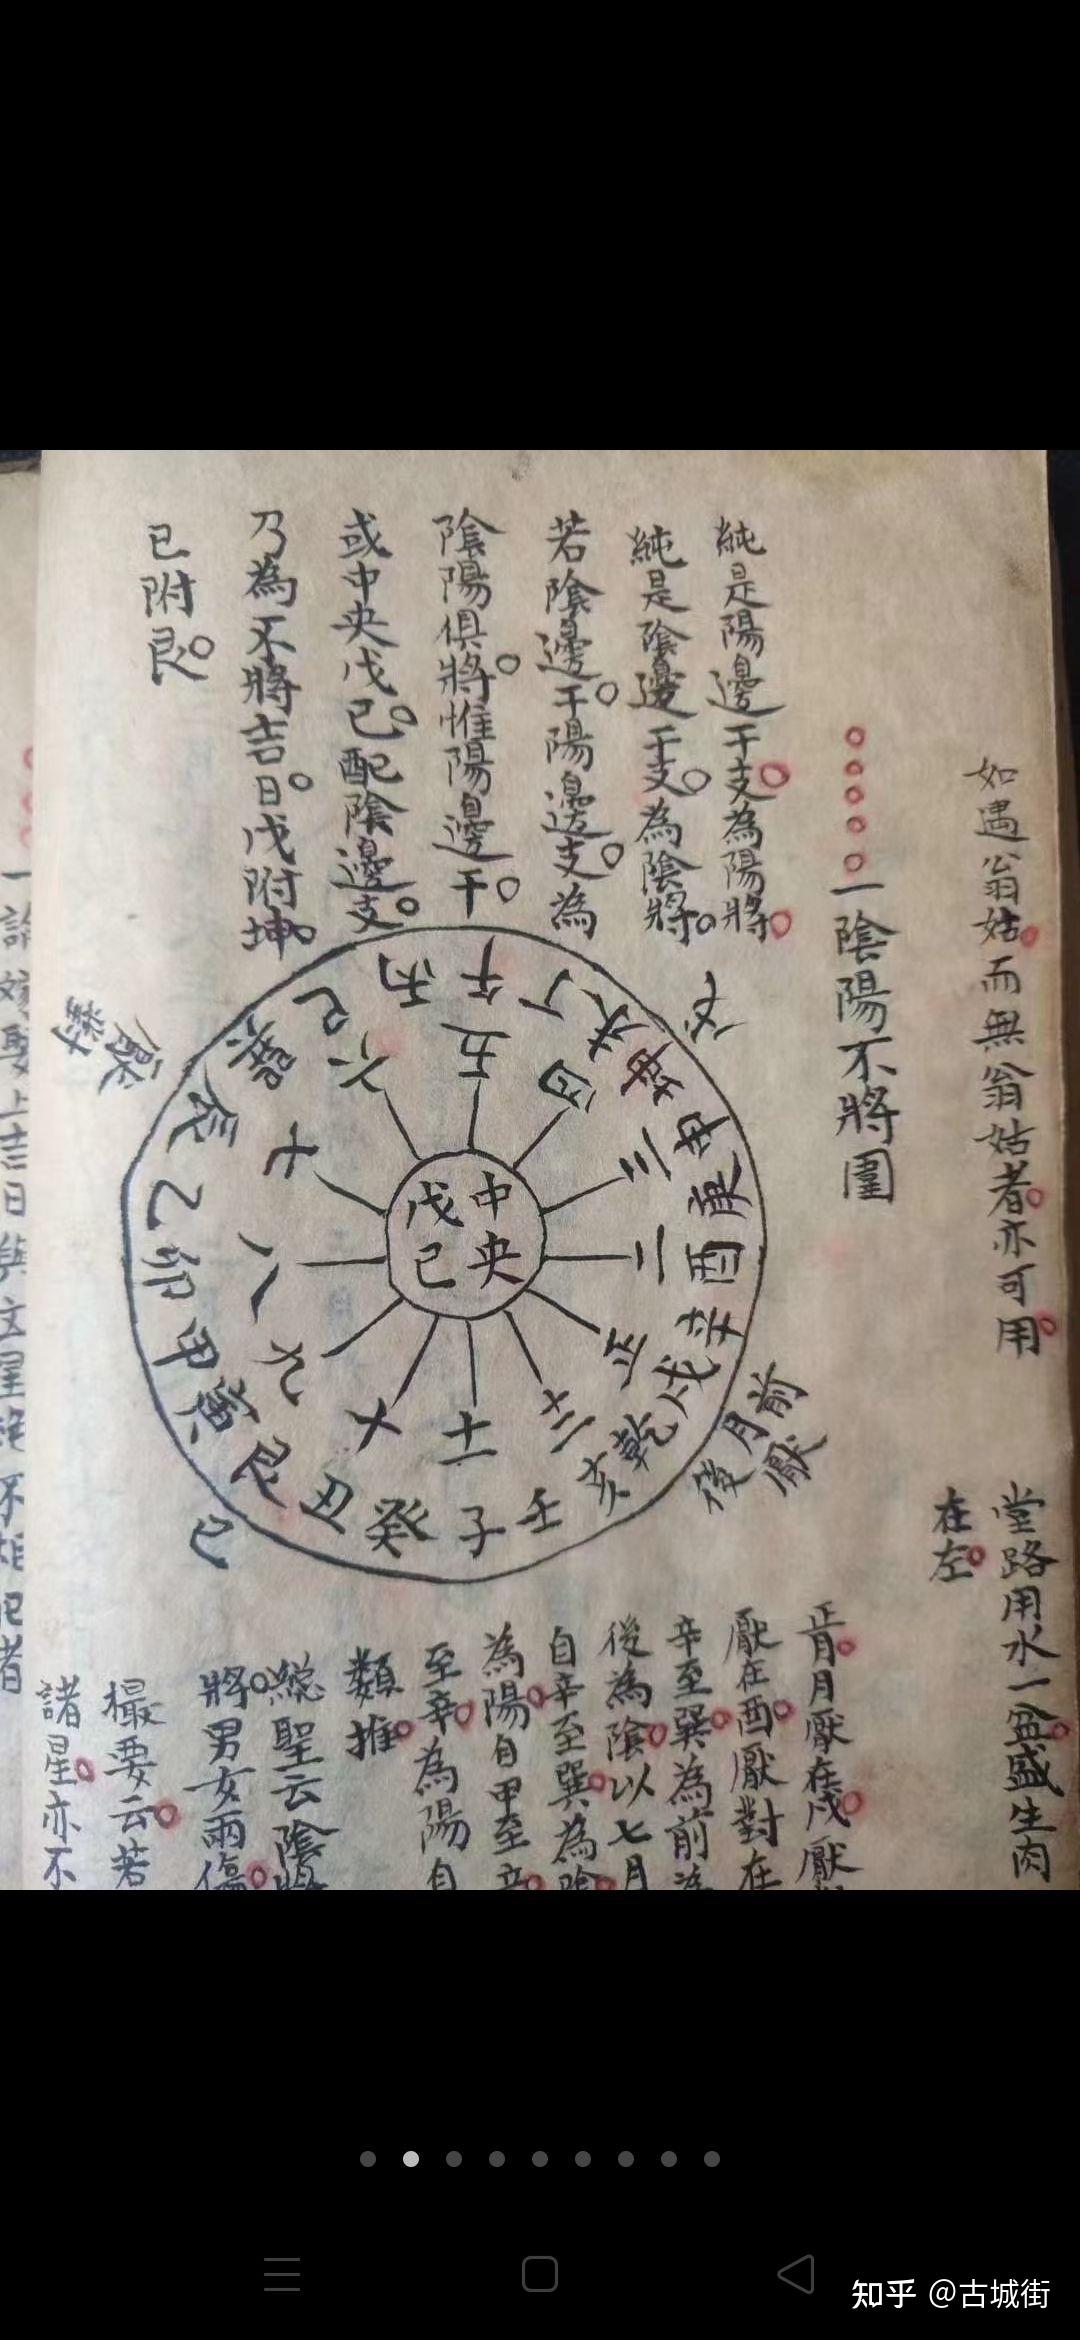 如遇翁姑而無翁姑者亦可用
堂路用水一盆盛生肉
在左
一陰陽不將圖
純是陽邊干支為陽將
純是陰邊干支為陰將
若陰邊干陽邊支為
陰陽俱將惟陽邊干
或中央戊己配陰邊支
乃為不將吉日戊附坤
已附艮
中央
戊己
午丁未坤申庚酉辛戌乾亥壬子癸丑艮寅甲卯乙辰巽巳丙
五四三二正十二十一十九八七六
戊
前
月厭
後
己
厭對
正月月厭在戌厭
厭在酉厭對在
辛至巽為前為
後為陰以七月
自辛至巽為陰
為陽自甲至辛
至辛為陽自
類推
總聖云陰將
將男女兩傷
撮要云若
諸星亦不
一論嫁娶上吉日與玄星絕不相犯者
知乎 @古城街